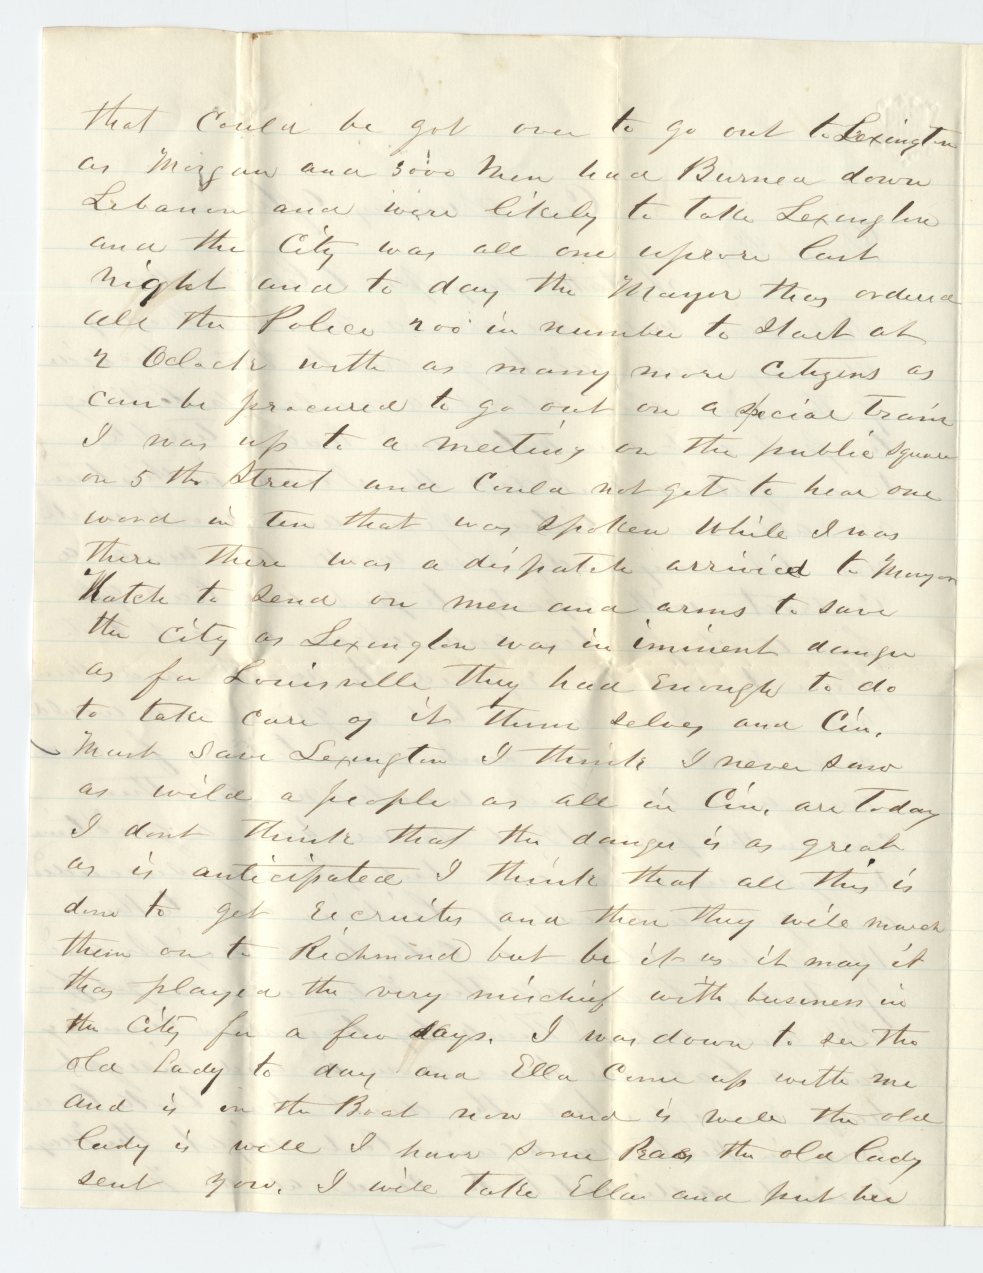 that Could be got over to go out to Lexington
as Morgan and 3000 Men had Burned down
Lebanon and were likely to take Lexington
and the City was all one uprore last
night and to day the Mayor thas ordered
all the Police 200 in number to Start at
2 Oclock with as many more Citizens as
can be procured to go out on a special train
I was up to a meeting on the public square
on 5 th Street and Could not get to hear one
word in ten that was spoken While I was
there there was a dispatch arrivied to Mayor
Hatch to send on men and arms to save
the City as Lexington was in iminent danger
as for Louisville they had Enough to do
to take care of it them selves and Cin.
Must Save Lexington I think I never saw
as wild a people as all in Cin. are Today
I dont think that the danger is as great
as is anticipated I think that all this is
done to get recruites and then they will march
them on to Richmond but be it as it may it
thas played the very mischief with business in
the City for a few days. I was down to see the
old Lady to day and Ella Come up with me
and is on the Boat now and is well the old
lady is well I have some the old lady
sent you. I will take Ella and put her